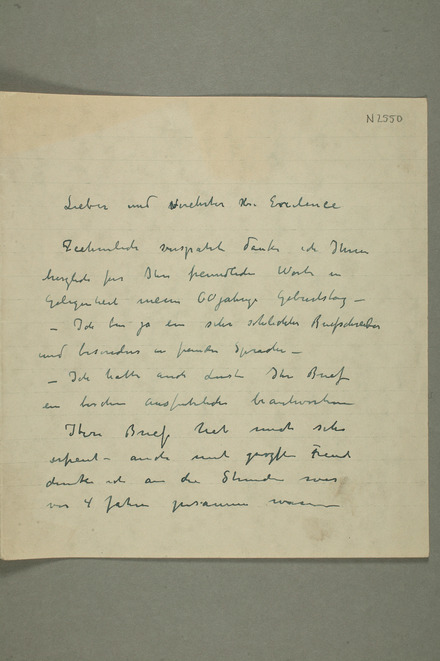 N2550
Lieber und verehrter Hr. Excellence
Ziemlich verspätet danke ich Ihnen
herzlich für Ihre freundliche Worte in
Gelegenheit meins 60 jährige Geburtstag –
– Ich bin ja ein sehr schlechter Briefschreiber
und besonders in fremden Sprachen –
– Ich hatte auch Ihr Brief
ein bischen ausführlicher beantworten
Ihre Brief hat mich sehr
erfreut – auch mit Freud
denke ich an die Stunden was
vor 4 Jahre zusammen waren